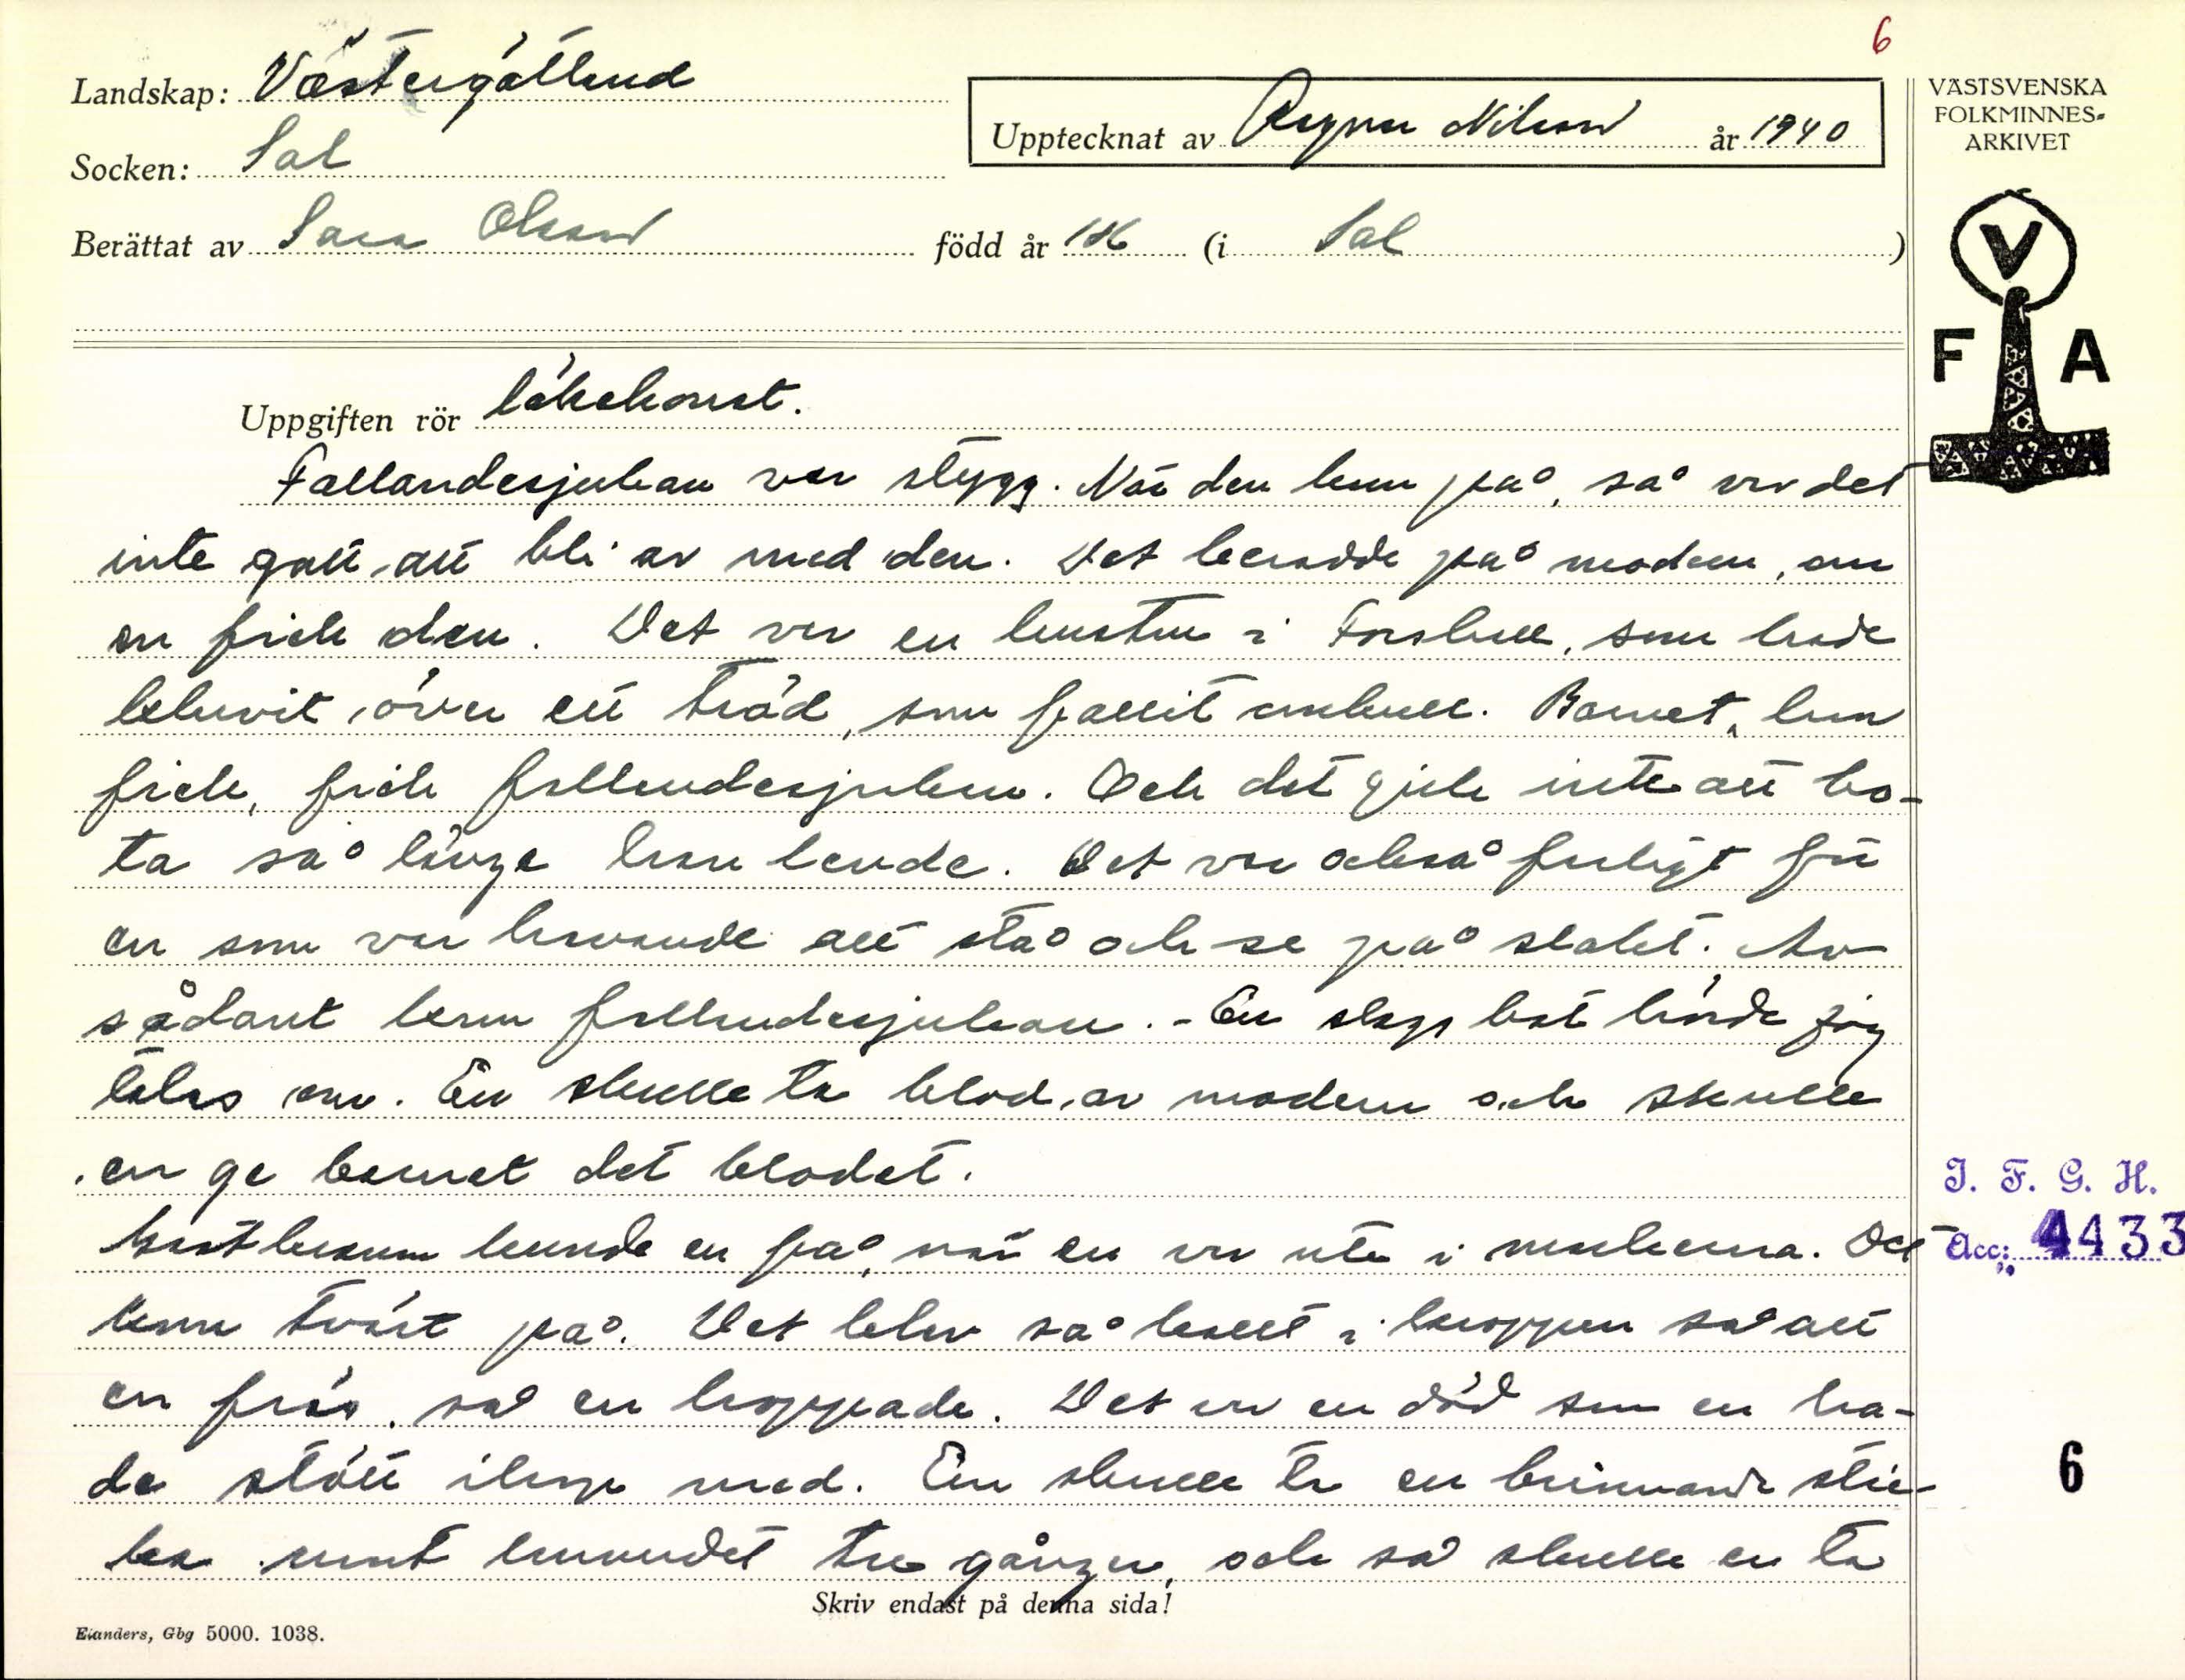 6
Landskap: Västergötland
Upptecknat av Ragnar Nilsson år 1940
Socken: Sal
Berättat av Sara Olsson född år 186 (i Sal )
VÄSTSVENSKA
FOLKMINNES-
ARKIVET
V
F A
Uppgiften rör läkekonst.
Fallandesjukan var stygg. När den kom på, så var det
inte gott att bli av med den. Det berodde på modern, om
en fick den. Det var en hustru i Forshall, som hade
klivit över ett träd, som fallit omkull. Barnet, hon
fick, fick fallandesjukan. Och det gick inte att bo-
ta så länge han levde. Det var också farligt för
en som var havande att stå och se på slakt. Av
sådant kom fallandesjukan. - En slags bot hörde jag
talas om. En skulle ta blod av modern och skulle
en ge barnet det blodet.
kunde en få, när en var ute i markerna. Det
kom tvärt på. Det blev så kallt i kroppen så att
en frös, så en hoppade. Det var en död som en ha-
de stött ihop med. En skulle ta en brinnande stic-
ka runt huvudet tre gånger, och så skulle en ta
Skriv endast på denna sida!
Elanders, Gbg 5000. 1038.
I. F. G. H.
Acc: 4433
6